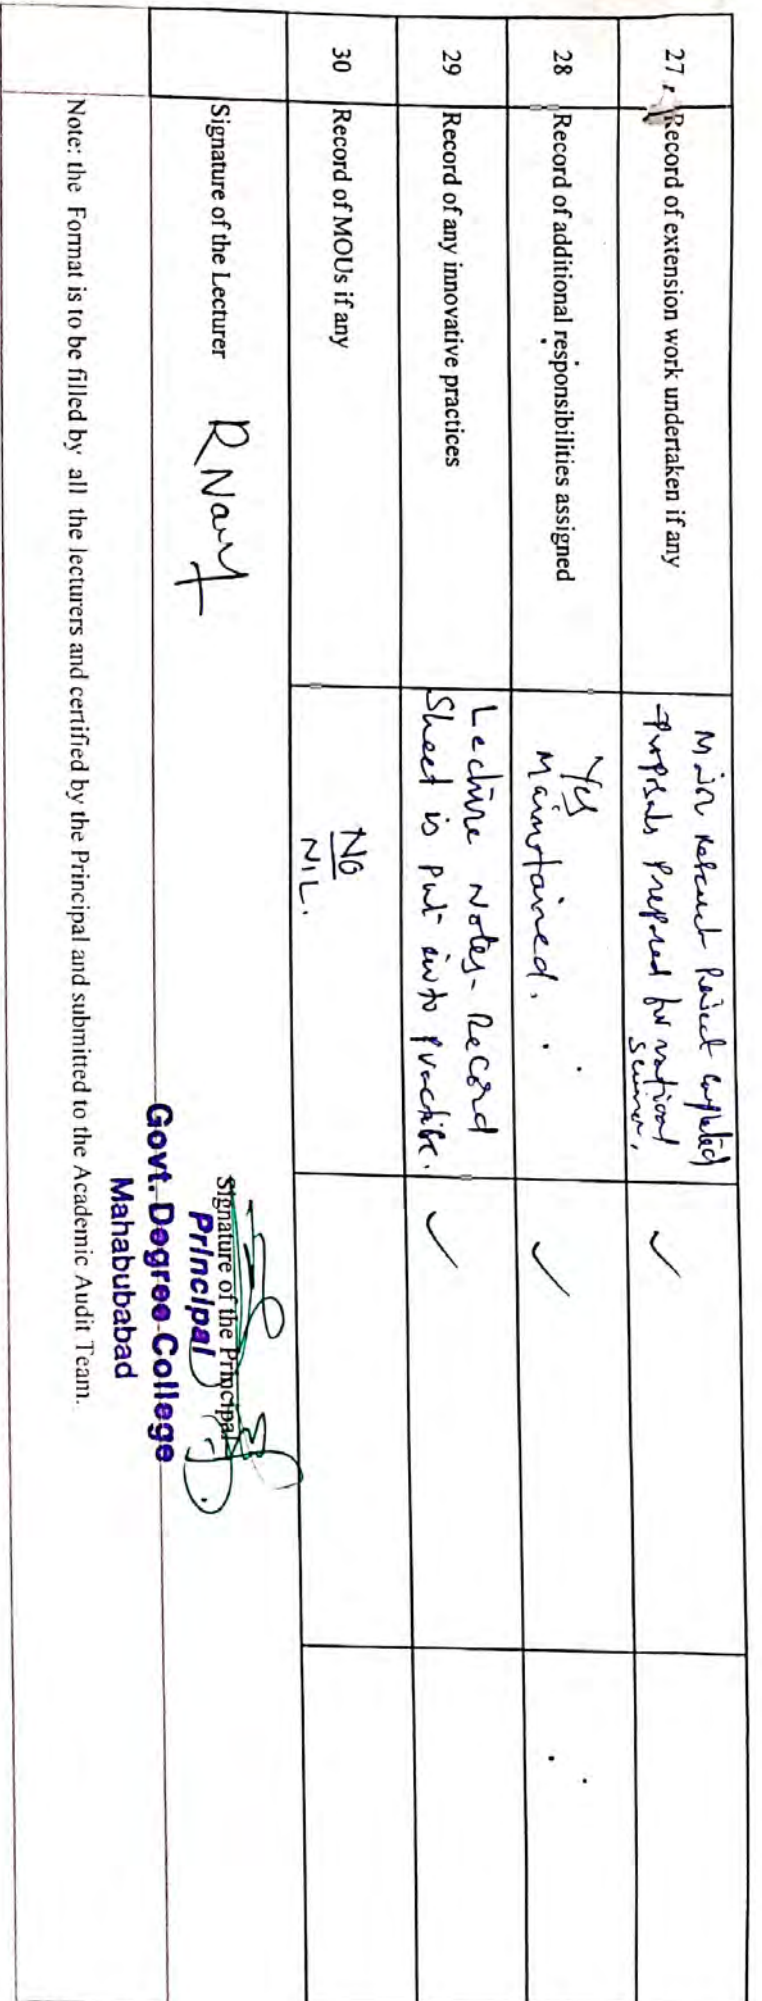 27 Record of extension work undertaken if any Major Research Project Completed ✓
Proposals Prepared for national
seminar.
28 Record of additional responsibilities assigned Yes ✓
Maintained.
29 Record of any innovative practices Lecture Notes- Record ✓
Sheet is put into practise.
30 Record of MOUs if any NO
NIL.
Signature of the Lecturer Signature of the Principal
Principal
Govt. Degree College
Mahabubabad
Note: the Format is to be filled by all the lecturers and certified by the Principal and submitted to the Academic Audit Team.